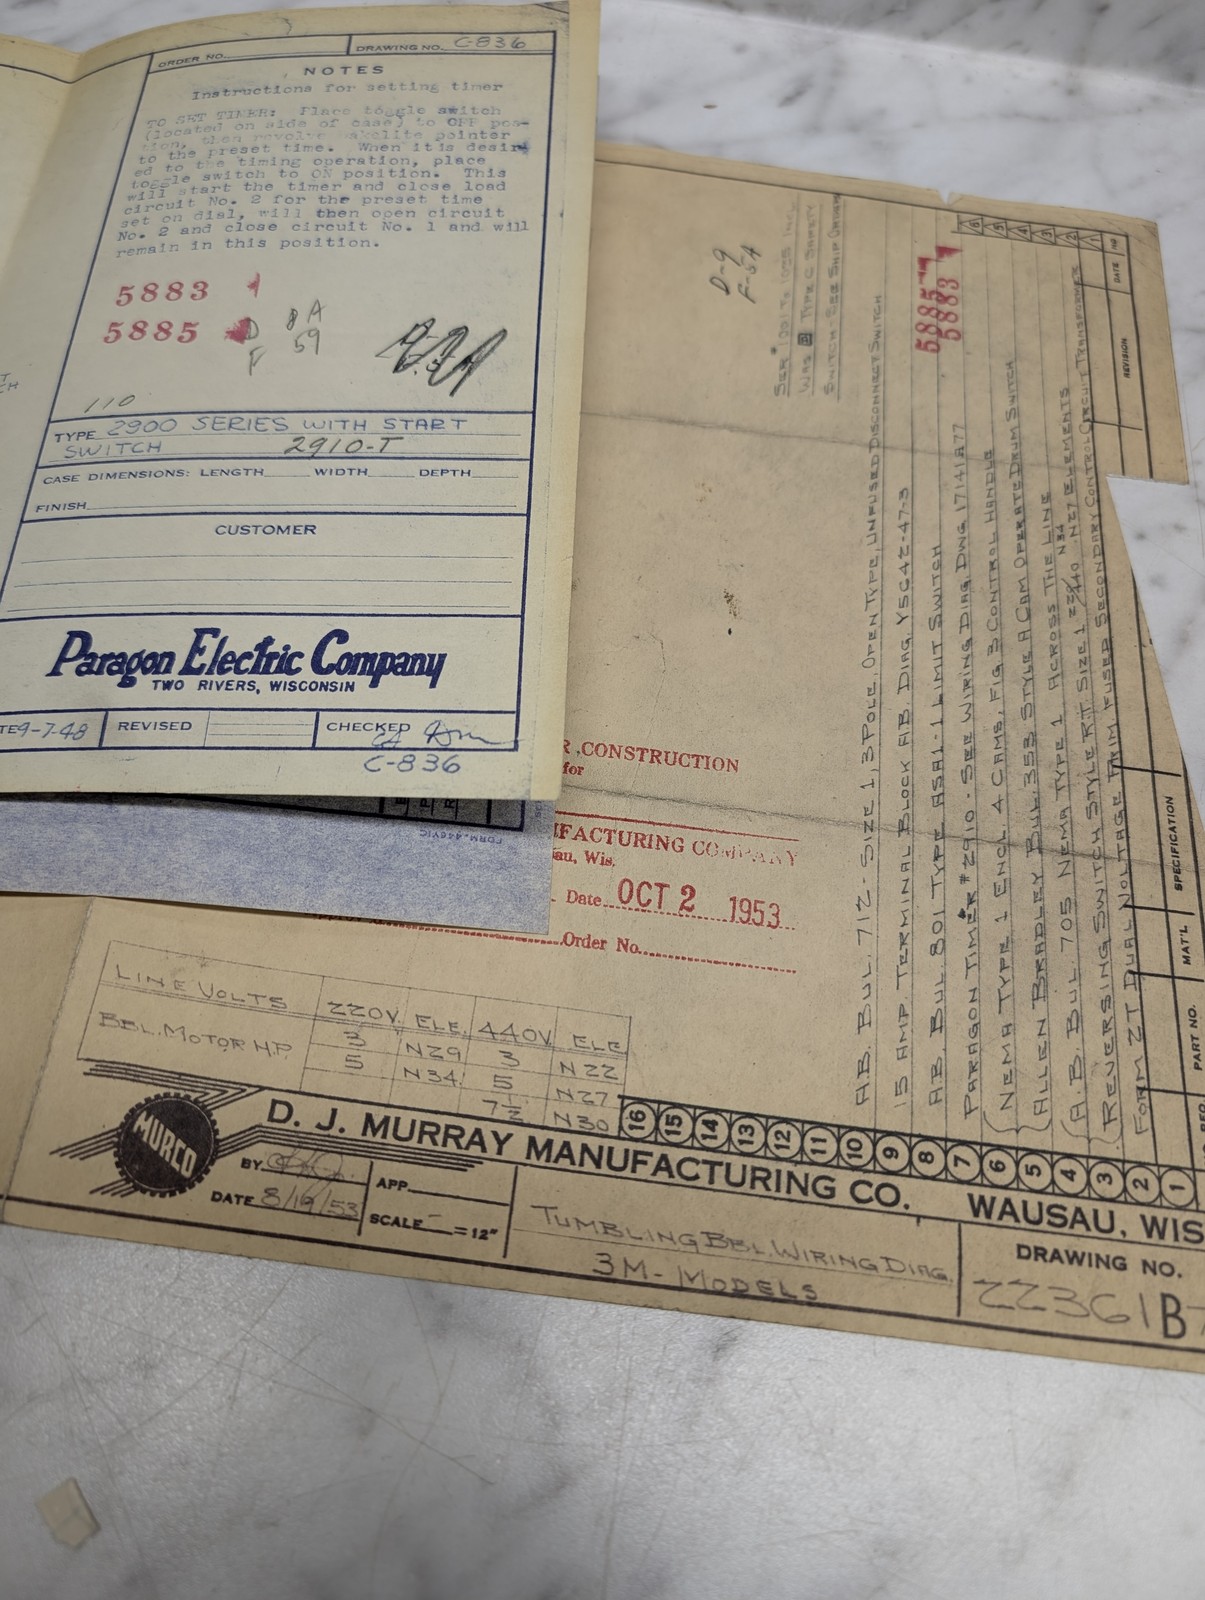 ORDER NO.
DRAWING NO. C-836
NOTES
Instructions for setting timer
TO SET TIMER: Place toggle switch
(located on side of case) to OFF pos-
tion, then revolve bakelite pointer
to the preset time. When it is desir-
ed to the timing operation, place
toggle switch to ON position. This
will start the timer and close load
circuit No. 2 for the preset time
set on dial, will then open circuit
No. 2 and close circuit No. 1 and will
remain in this position.
5883
5885
D 8A
F 59
110
TYPE 2900 SERIES WITH START
SWITCH 2910-T
CASE DIMENSIONS: LENGTH WIDTH DEPTH
FINISH
CUSTOMER
Paragon Electric Company
TWO RIVERS, WISCONSIN
TE 9-7-48
REVISED
CHECKED
C-836
D-9
F-54
SER # 1001 TO
WAS B TYPE C SAFETY
SWITCH - SEE SHIP ORDER
5885
5883
CONSTRUCTION
for
FACTURING COMPANY
au, Wis.
Date OCT 2 1953
Order No.
A.B. BUL. 712 - SIZE 1, 3 POLE, OPEN TYPE, UNFUSED DISCONNECT SWITCH
15 AMP. TERMINAL BLOCK A.B. DIAG. Y5C42-47-3
A.B. BUL. 801 TYPE ASA1-1 LIMIT SWITCH
PARAGON TIMER #2910 - SEE WIRING DIAG DWG 17141A77
NEMA TYPE 1 ENCL. 4 CAMS, FIG 3 CONTROL HANDLE
ALLEN BRADLEY BUL. 358 STYLE A CAM OPERATE DRUM SWITCH
A.B. BUL. 705 NEMA TYPE 1 ACROSS THE LINE
REVERSING SWITCH STYLE R.T. SIZE 1 220/440 N34 N27 ELEMENTS
FORM 2T DUAL VOLTAGE PRIM FUSED SECONDARY CONTROL CIRCUIT TRANSFORMER
6
5
4
3
2
1
NO
DATE
REVISION
SPECIFICATION
MAT'L
PART NO.
LINE VOLTS 220V. ELE. 440V ELE
BBL. MOTOR H.P. 3 N29 3 N22
5 N34 5 N27
7 1/2 N30
16 15 14 13 12 11 10 9 8 7 6 5 4 3 2 1
MURCO
D. J. MURRAY MANUFACTURING CO. WAUSAU, WIS
BY
DATE 8/19/53
APP.
SCALE - = 12"
TUMBLING BBL. WIRING DIAG.
3M - MODELS
DRAWING NO.
22361B7